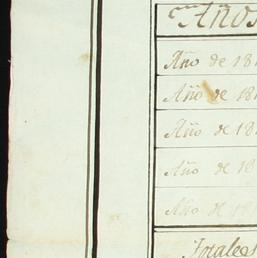 Años
Año de 18
Año de 18
Año de 18
Año de 18
Año de 18
Totales